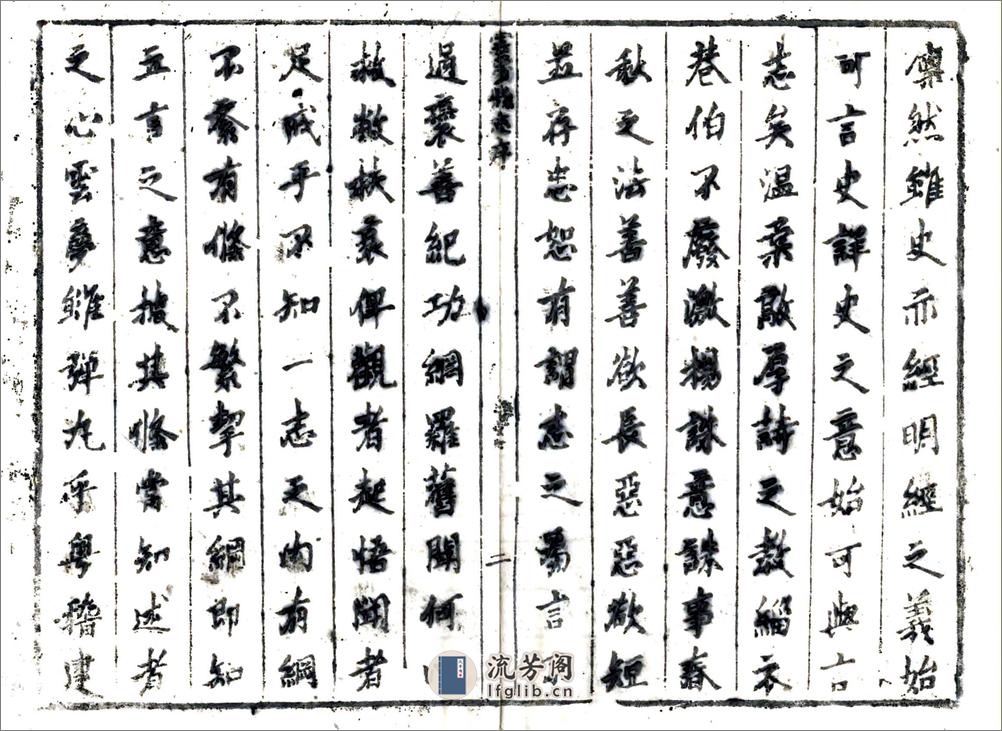 凜然雖史亦經明經之義始
可言史詳史之意始可與言
志矣温柔敢厚詩之教緇衣
巷伯不廢激揚誅意誅事春
秋之法善善欲長惡惡欲短
並存忠恕有謂志之
言
雲夢縣志序
二
過褒善紀功網羅舊聞何
救敝扶衰俾觀者起悟聞者
足戒乎不知一志之内有綱
不紊有條不繁挈其綱即知
立言之意披其條嘗知述者
之心雲夢雖彈丸乎粤稽建
流芳阁
lfglib.cn